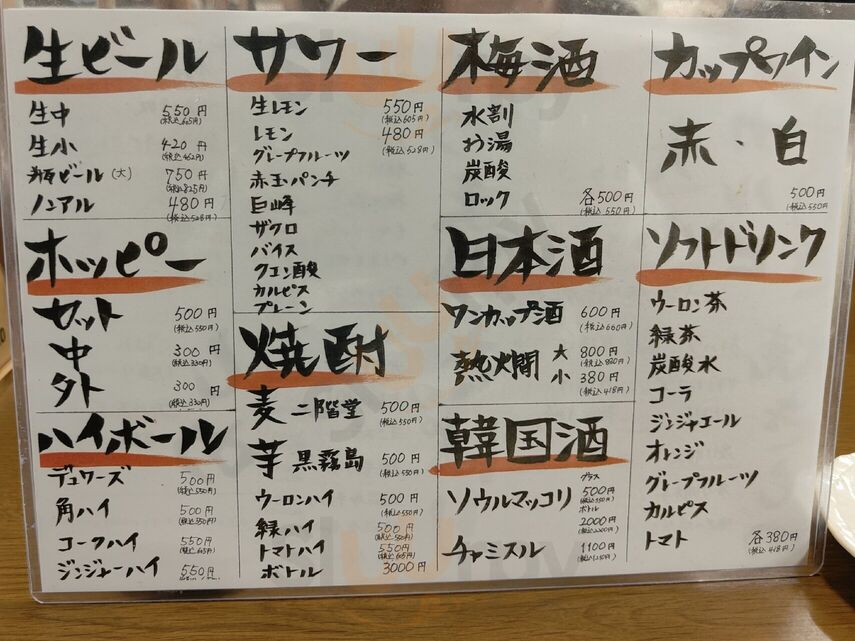 生ビール
生中 550円
(税込605円)
生小 420円
(税込462円)
瓶ビール(大) 750円
(税込825円)
ノンアル 480円
(税込528円)
ホッピー
セット 500円
(税込550円)
中 300円
(税込330円)
外 300円
(税込330円)
ハイボール
デュワーズ 500円
(税込550円)
角ハイ 500円
(税込550円)
コークハイ 550円
(税込605円)
ジンジャーハイ 550円
サワー
生レモン 550円
(税込605円)
レモン 480円
(税込528円)
グレープフルーツ
赤玉パンチ
巨峰
ザクロ
バイス
クエン酸
カルピス
プレーン
焼酎
麦 二階堂 500円
(税込550円)
芋 黒霧島 500円
(税込550円)
ウーロンハイ 500円
(税込550円)
緑ハイ 500円
(税込550円)
トマトハイ 550円
(税込605円)
ボトル 3000円
梅酒
水割
お湯
炭酸
ロック 各500円
(税込550円)
日本酒
ワンカップ酒 600円
(税込660円)
熱燗 大 800円
(税込880円)
小 380円
(税込418円)
韓国酒
グラス
ソウルマッコリ 500円
(税込550円)
ボトル
2000円
(税込2200円)
チャミスル 1100円
カップワイン
赤・白
500円
(税込550円
ソフトドリンク
ウーロン茶
緑茶
炭酸水
コーラ
ジンジャエール
オレンジ
グレープフルーツ
カルピス
トマト 各380円
(税込418円)